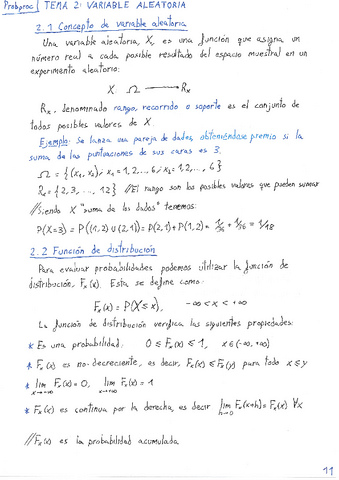 Probproc | TEMA 2: VARIABLE ALEATORIA
2.1 Concepto de variable aleatoria
Una variable aleatoria, X, es una función que asigna un
número real a cada posible resultado del espacio muestral en un
experimento aleatorio:
X : Ω ⟶ Rₓ
Rₓ, denominado rango, recorrido o soporte es el conjunto de
todos posibles valores de X.
Ejemplo: Se lanza una pareja de dados, obteniéndose premio si la
suma de las puntuaciones de sus caras es 3.
Ω = {(x₁, x₂); x₁ = 1, 2, ..., 6; x₂ = 1, 2, ..., 6}
Rₓ = {2, 3, ..., 12} //El rango son los posibles valores que pueden sumar
//Siendo X "suma de los dados" tenemos:
P(X=3) = P((1,2) ∪ (2,1)) = P(2,1) + P(1,2) = 1/36 + 1/36 = 1/18
2.2 Función de distribución
Para evaluar probabilidades podemos utilizar la función de
distribución, Fₓ(x). Esta se define como:
Fₓ(x) = P(X ≤ x), -∞ < x < +∞
La función de distribución verifica las siguientes propiedades:
* Es una probabilidad, 0 ≤ Fₓ(x) ≤ 1, x ∈ (-∞, +∞)
* Fₓ(x) es no-decreciente, es decir, Fₓ(x) ≤ Fₓ(y) para todo x ≤ y
* lim x→-∞ Fₓ(x) = 0, lim x→+∞ Fₓ(x) = 1
* Fₓ(x) es continua por la derecha, es decir lim h→0 Fₓ(x+h) = Fₓ(x) ∀x
//Fₓ(x) es la probabilidad acumulada.
11